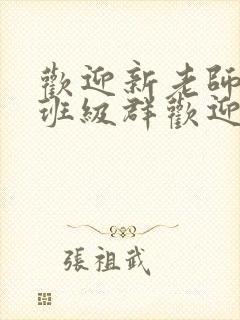 歡迎新老師
班級群歡迎
張祖武